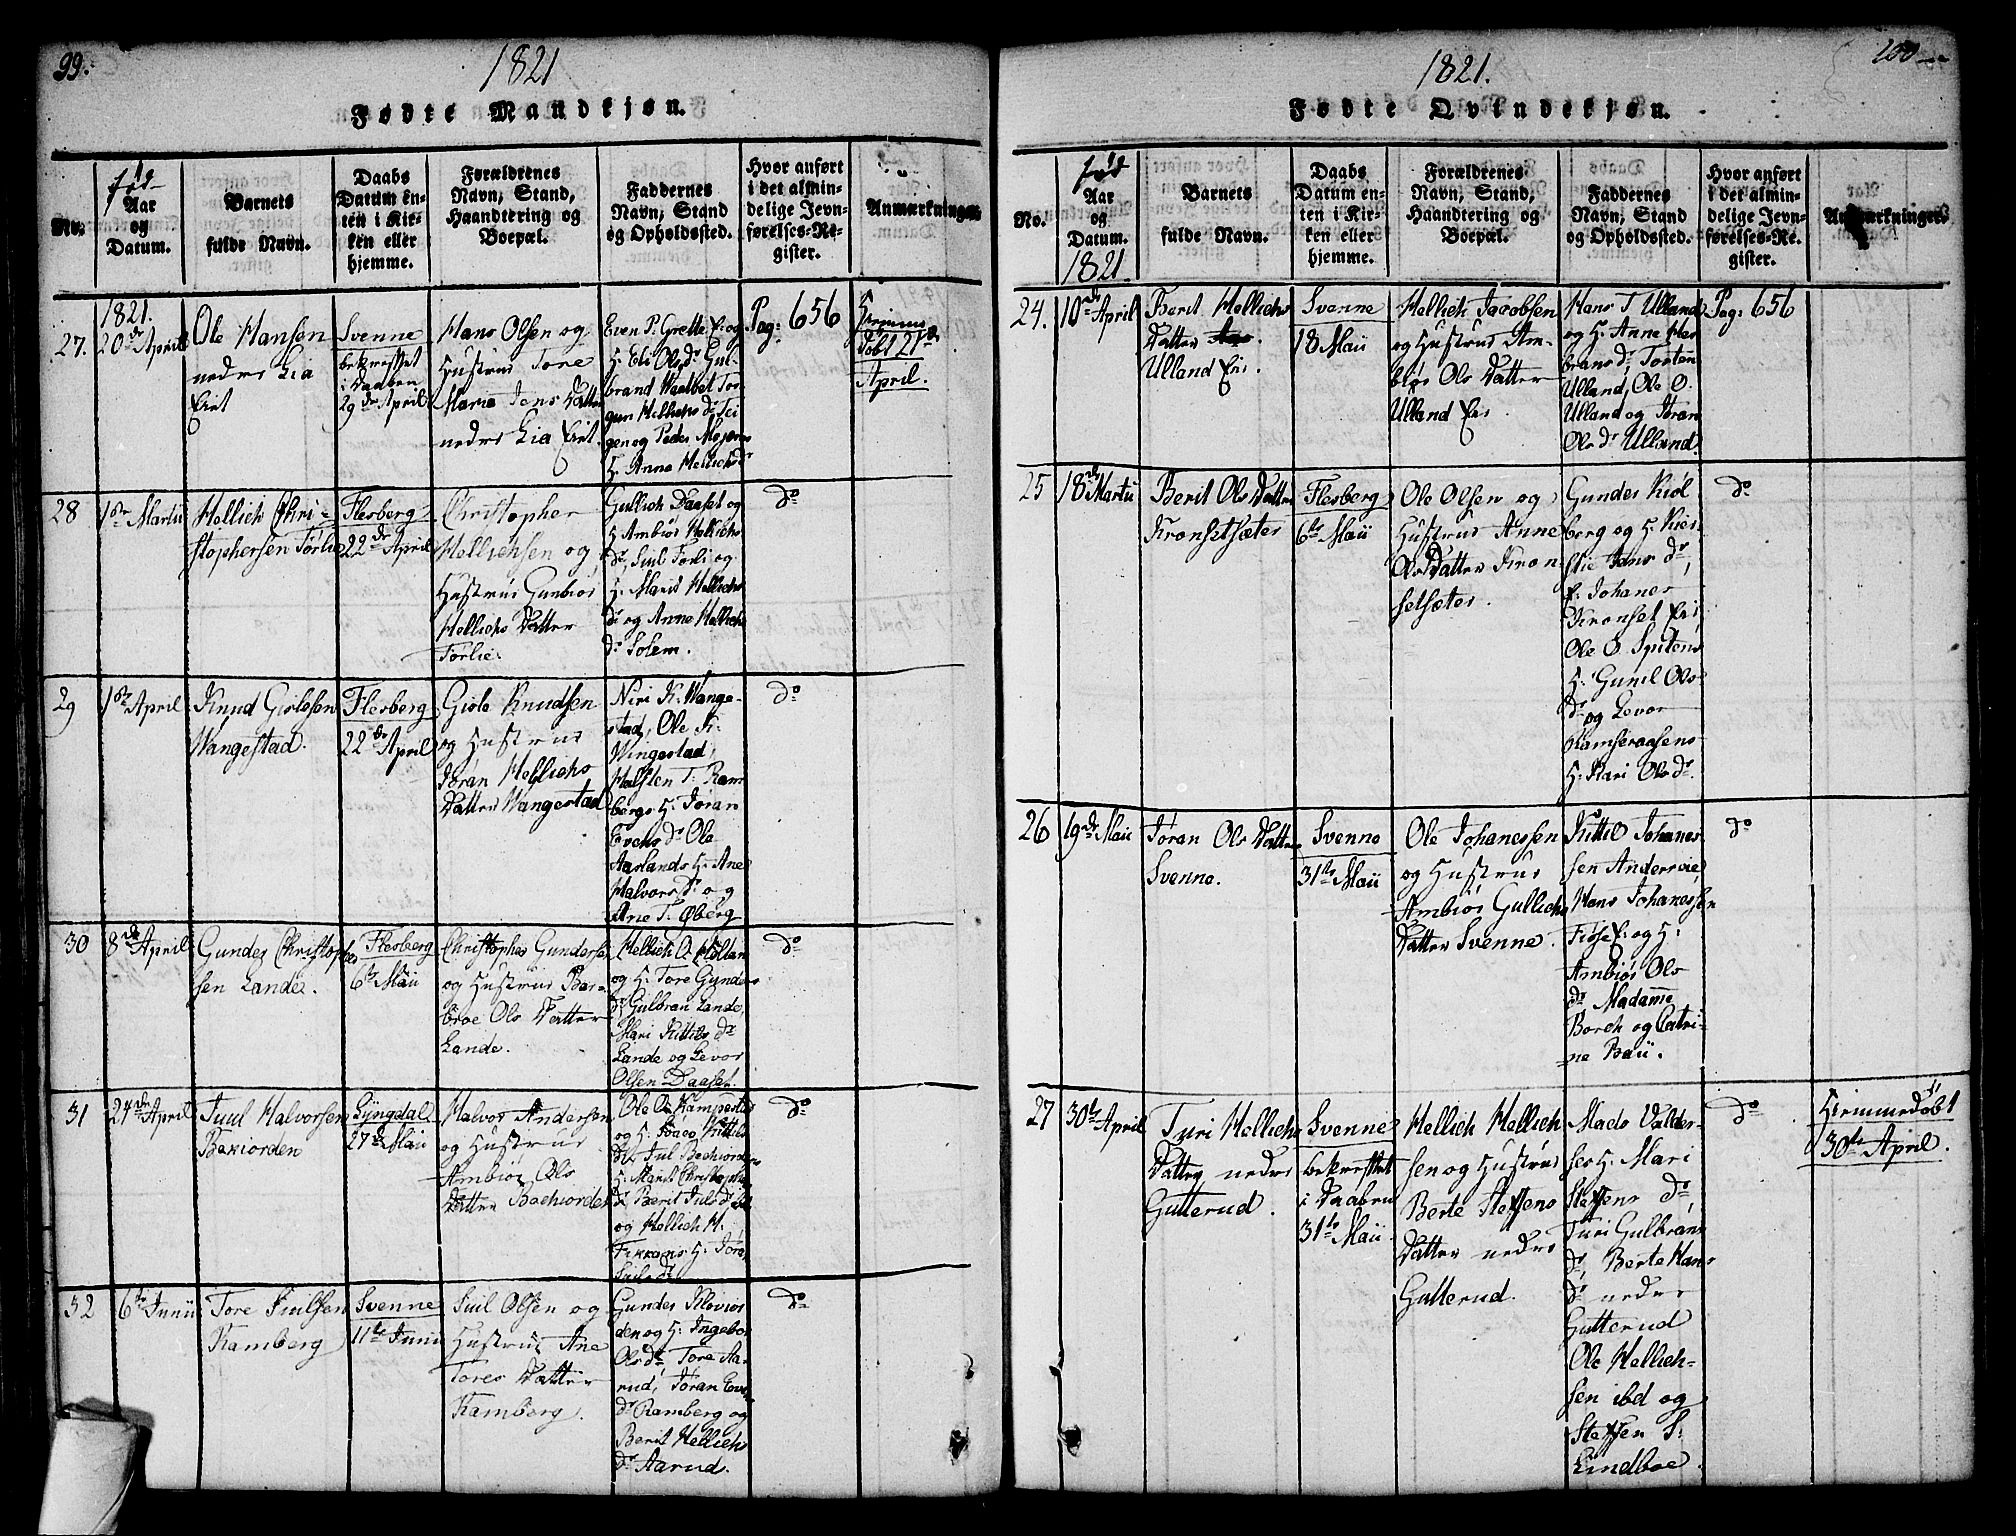 99.
1821
Fødte Mandkjøn.
No.
fød
Aar
og
Datum.
Barnets
fulde Navn.
Daabs
Datum en-
ten i Kir-
ken eller
hjemme.
Forældrenes
Navn, Stand,
Haandtering og
Boepæl.
Faddernes
Navn, Stand
og Opholdssted.
Hvor anført
i det almin-
delige Jevn-
førelses-Re-
gister.
Anmærkninger.
27.
1821.
20de April
Ole Hansen
nedre Lia
Eiet
Svenne
bekræftet
i Daaben
29de April
Hans Olsen og
Hustrue Tore
Maria Jens Datter
nedre Lia Eiet.
Even P. Grette E: og
H. Eli Ols Dr Gul-
brand Waalbet Tor
gun Hellichs Dr Tei
gen og Peder Mojens
H. Anne Hellichs Dr
Pag: 656
Hjemme
døbt 21de
April.
28
1ste Martii
Hellich Chri-
stophersen Tørlie
Flesberg
22de April
Christopher
Hellichsen og
Hustrue Gunbior
Hellichs Datter
Tørlie.
Gullich Daaset og
H. Ambiør Hellichs
Dr, Juul Tørli og
H. Maris Hellichs
Dr og Anne Hellichs
Dr Solem.
do
29
1ste April
Knud Gislesen
Wangestad.
Flesberg
22de April
Gisle Knudsen
og Hustrue
Jøran Hellichs
Datter Wangestad
Niri K. Wange-
stad, Ole K.
Wingestad,
Halsten T. Ram
bergs H. Jøran
Evens Dr Ole
Aaslands H. Ane
Halvors Dr og
Ane T. Øberg
do
30
8de April
Gunder Christoph
sen Lande.
Flesberg
6te Maii
Christopher Gunders
og Hustrue Bar-
broe Ols Datter
Lande.
Hellich O. Holtan
og H. Tore Gunders
Dr Gulbran Lande,
Mari Kittils Dr
Lande og Levor
Olsen Daaset.
do
31
24de April
Juul Halvorsen
Bekiorden
Lyngdal
27de Maii
Halvor Andersen
og Hustrue
Ambiør Ols
Datter Bachiorden
Ole O. Kampestad
og H. Kittils
Dr Jul Bechiordens
H. Maris Christophers
Dr Berit Juls Dr
og Hellich H.
H. Jøra
Juls Dr
do
32
6te Junii
Tore Juulsen
Ramberg
Svenne
11te Junii
Juul Olsen og
Hustrue Ane
Tores Datter
Ramberg.
Gunder Kloviør
den og H. Ingebor
Ols Dr Tore Aa-
rud, Jøran Evens
Dr Ramberg og
Berit Hellichs
Dr Aarud.
do
100
1821.
Fødte Qvindekjøn.
No.
fød
Aar
og
Datum.
1821.
Barnets
fulde Navn.
Daabs
Datum en-
ten i Kir-
ken eller
hjemme.
Forældrenes
Navn, Stand,
Haandtering og
Boepæl.
Faddernes
Navn, Stand
og Opholdssted.
Hvor anført
i det almin-
delige Jevn-
førelses-Re-
gister.
Anmærkninger.
24.
10de April
Berit Hellichs
Datter
Ulland Eie.
Svenne
18 Maii
Hellich Jacobsen
og Hustrue Am-
biør Ols Datter
Ulland Eie
Hans T Ulland
og H. Anne Hal
brans Dr, Torsten
Ulland, Ole O.
Ulland og Jøran
Ols Dr Ulland.
Pag: 656
25
18de Martii
Berit Ols Datter
Kronsetsæter
Flesberg
6te Maii
Ole Olsen og
Hustrue Anne
Ols Datter Kron
setsæter.
Gunder Kiøl
berg og H. Kier
stie Jens Dr,
E. Johanes
Kronset Eie,
Ole O. Spitens
H. Gunil Ols
Dr og Levor
Ramseraasens
H. Kari Ols Dr.
do
26
19de Maii
Jøran Ols Datter
Svenne.
Svenne
31te Maii
Ole Johanessen
og Hustrue
Ambiør Gullichs
Datter Svenne.
Kittil Johanes-
sen Andersvie
Hans Johanessen
Fiøse E: og H:
Ambiør Ols
Dr Madame
Borch og Catri-
ne Bau.
do
27
30te April
Turi Hellichs
Datter nedre
Gutterud.
Svenne
bekræftet
i Daaben
31te Maii
Hellich Hellich
sen og Hustrue
Berte Steffens
Datter nedre
Gutterud.
Mads Valder-
ses H. Mari
Steffens Dr
Turi Gulbrans
Dr, Berte Hans
Dr nedre
Gutterud
Ole Hellich-
sen ibd og
Steffen S.
Lindboe.
do
Hjemmedøbt
30te April.